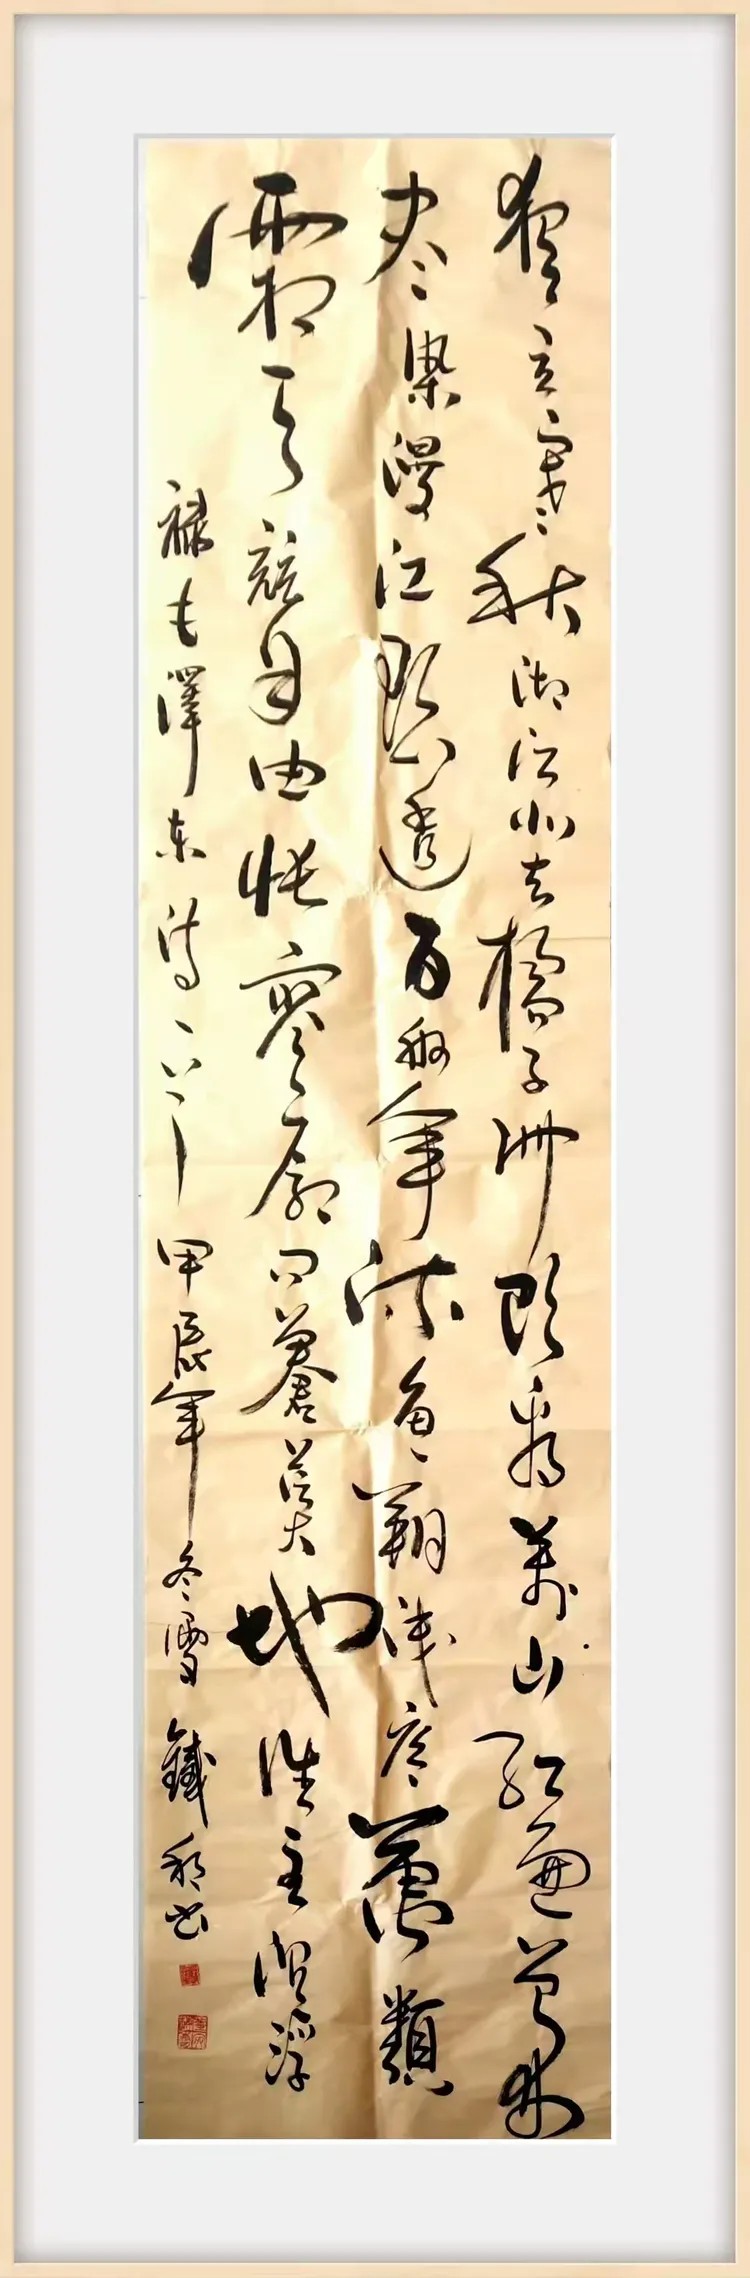 獨立寒秋湘江北去橘子洲頭看萬山紅遍層林
尽染漫江碧透百舸争流魚翔浅底萬類
霜天競自由悵寥廓问蒼茫大地誰主沉浮
禄毛澤东诗一首甲辰年冬雪鐵书